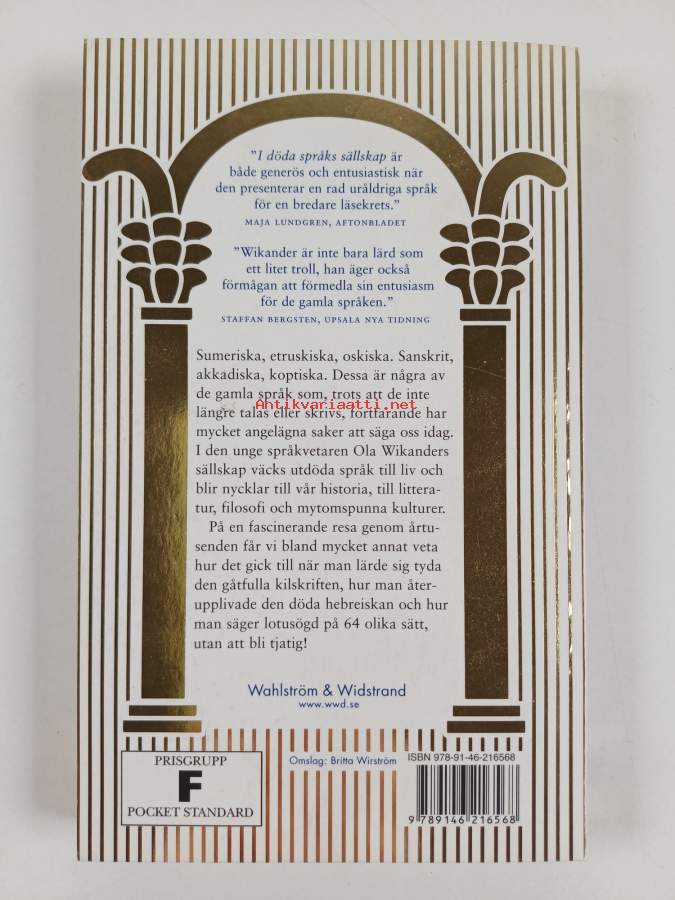 "I döda språks sällskap är
både generös och entusiastisk när
den presenterar en rad uråldriga språk
för en bredare läsekrets."
MAJA LUNDGREN, AFTONBLADET
"Wikander är inte bara lärd som
ett litet troll, han äger också
förmågan att förmedla sin entusiasm
för de gamla språken."
STAFFAN BERGSTEN, UPSALA NYA TIDNING
Sumeriska, etruskiska, oskiska. Sanskrit,
akkadiska, koptiska. Dessa är några av
de gamla språk som, trots att de inte
Antikvariaatti.net
längre talas eller skrivs, fortfarande har
mycket angelägna saker att säga oss idag.
I den unge språkvetaren Ola Wikanders
sällskap väcks utdöda språk till liv och
blir nycklar till vår historia, till littera-
tur, filosofi och mytomspunna kulturer.
På en fascinerande resa genom årtu-
senden får vi bland mycket annat veta
hur det gick till när man lärde sig tyda
den gåtfulla kilskriften, hur man åter-
upplivade den döda hebreiskan och hur
man säger lotusögd på 64 olika sätt,
utan att bli tjatig!
Wahlström & Widstrand
www.wwd.se
PRISGRUPP
F
POCKET STANDARD
Omslag: Britta Wirström
ISBN 978-91-46-216568
9 789146 216568